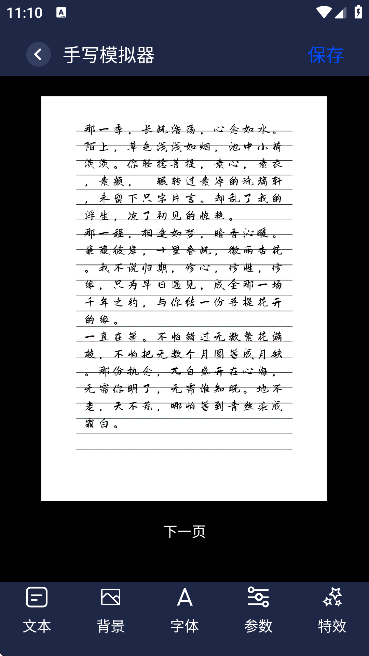 11:10
手写模拟器
保存
那一季，长风浩荡，心念如水。
陌上，草色浅浅如烟，池中小荷
淡淡。你轻捻菩提，素心，素衣
，素颜，　辗转过素净的流嫣轩
，未留下只字片言。却乱了我的
浮生，凉了初见的惊艳。
那一程，相逢如梦，暗香沁暖。
蒹葭彼岸，十里春风，微雨杏花
。我不说归期，修心，修性，修
缘，只为早日遇见，成全那一场
千年之约，与你结一份菩提花开
的缘。
一直在等。不怕错过无数繁花满
枝，不怕把无数个月圆等成月缺
。那份执念，兀自盛开在心海，
无需你明了，无需谁知晓。地不
老，天不荒，哪怕等到青丝染成
霜白。
下一页
文本
背景
字体
参数
特效